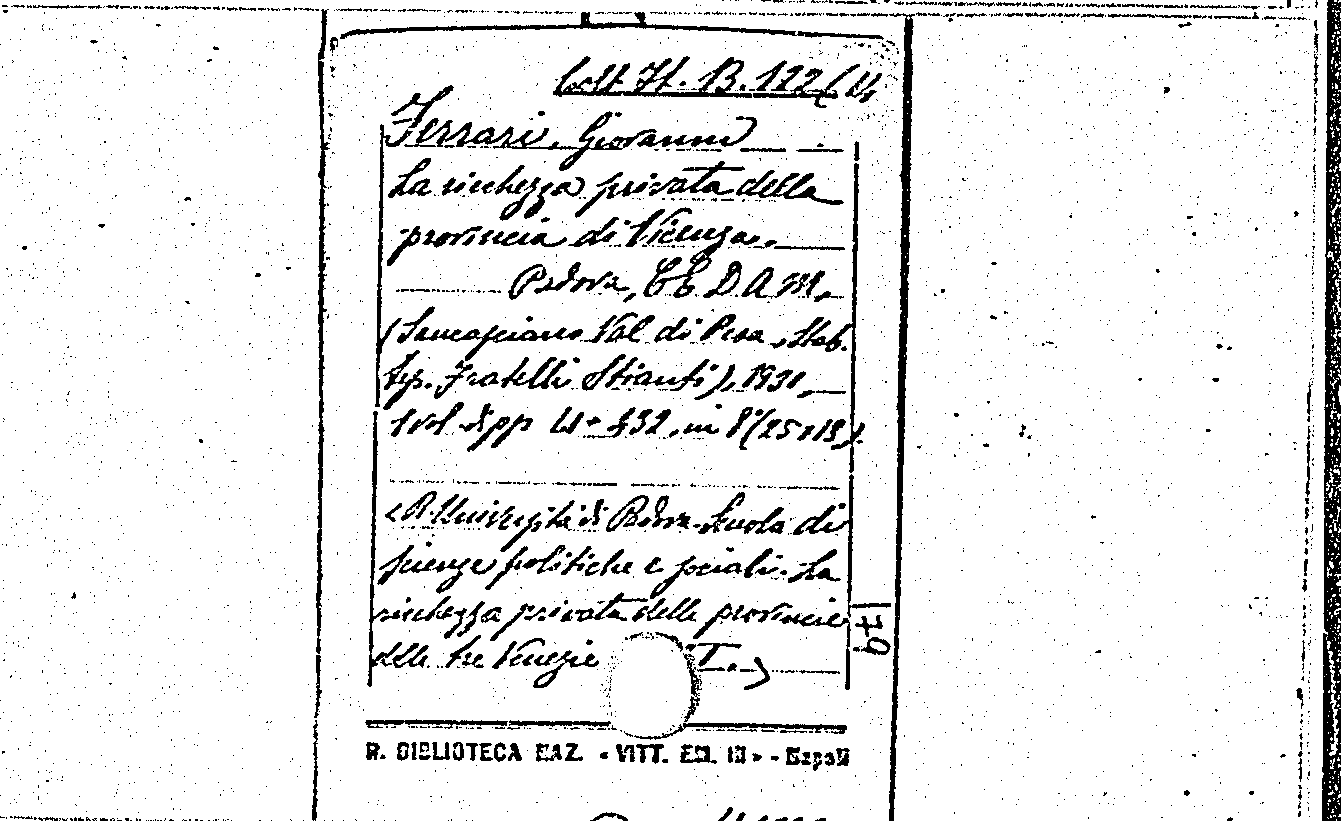 Coll. It. B. 122 (4
Ferrari, Giovanni
La ricchezza privata della
provincia di Vicenza.
Padova, CEDAM,
(Sancasciano Val di Pesa, Stab.
tip. Fratelli Stianti), 1931,
1 vol di pp 432, in 8° (25x18).
«R. Università di Padova. Scuola di
scienze politiche e sociali. La
ricchezza privata delle provincie
delle tre Venezie I.»
179
R. BIBLIOTECA NAZ. « VITT. EM. III » - Napoli